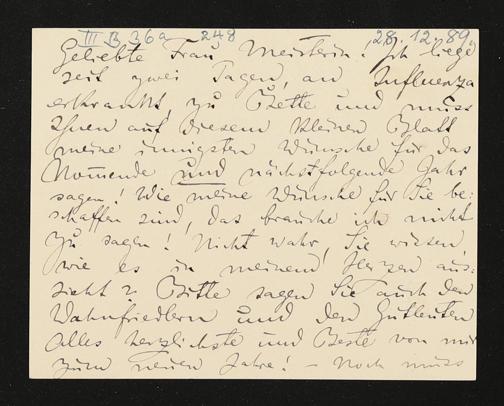 III B 36a 248 28.12.89
Geliebte Frau Meisterin! Ich liege
seit zwei Tagen, an Influenza
erkrankt, zu Bette und muss
Ihnen auf diesem kleinen Blatt
meine innigsten Wünsche für das
Kom̄ende und nächstfolgende Jahr
sagen! Wie meine Wünsche für Sie be-
schaffen sind, das brauche ich nicht
zu sagen! Nicht wahr, Sie wissen,
wie es in meinem Herzen aus-
sieht? Bitte sagen Sie auch den
Wahnfriedlern und den Gutleuten
Alles herzlichste und Beste von mir
zum neuen Jahre! – Noch muss